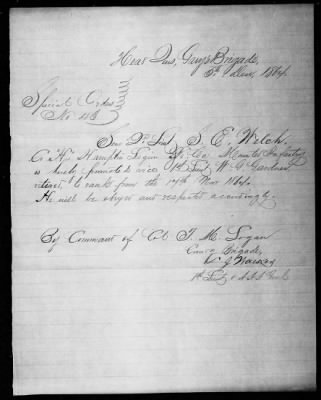 Head Qrs, Gary's Brigade,
5th Dec, 1864.
Special Order
No.
S. E. Welch,
Co "H" Hampton Legion So. Ca. Mounted Infantry
is hereby promoted vice 1st Lieut W. A. Gardner
retired, to rank from the 19th Nov 1864.
He will be obeyed and respected accordingly.
By Command of Col T. M. Logan
Comg Brigade,
1st Lieut & A.A.A. Genl